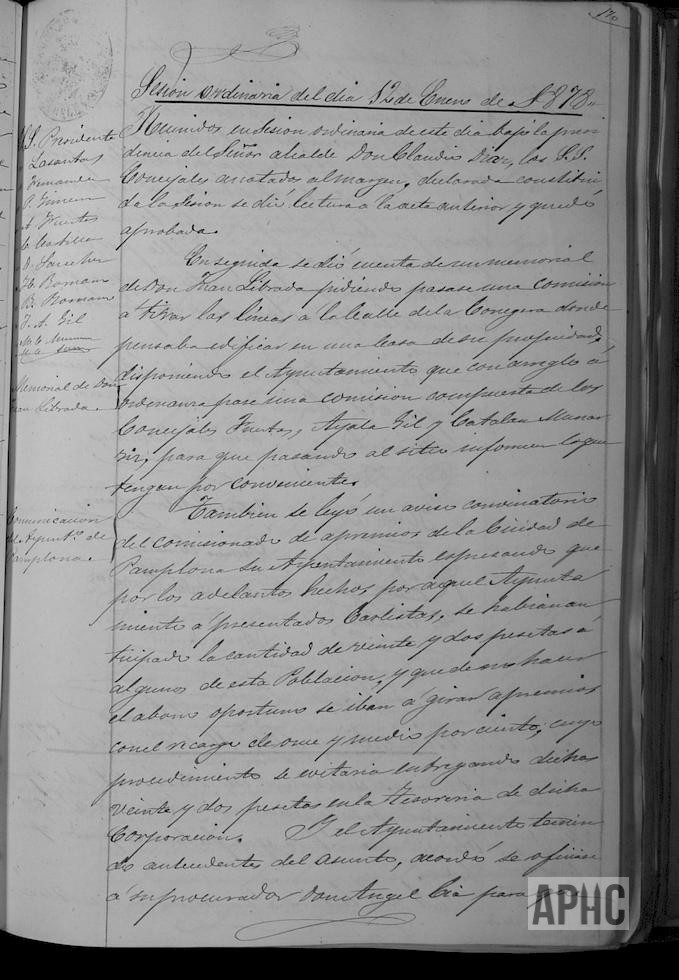 170
Sesion ordinaria del dia 12 de Enero de 1878.
S.S. Presidente
Lasantas
Fernandez
P. Ximenez
A. Fuertes
C. Catalan
Sanchez
H. Romano
B. Romano
J. A. Gil
Memorial de Don
Juan Librada.
Comunicacion
del Ayunto. de
Pamplona.
Reunidos en sesion ordinaria de este dia bajo la presi
dencia del Señor alcalde Don Claudio Diaz, los S.S.
Concejales anotados al margen, declarada constitui
da la sesion se dió lectura a la acta anterior y quedó
aprobada.
En seguida se dió cuenta de un memorial
de Don Juan Librada pidiendo pasase una comision
á tirar las lineas á la Calle de la Conegera donde
pensaba edificar en una Casa de su propiedad,
disponiendo el Ayuntamiento que con arreglo á
ordenanza pase una comision compuesta de los
Concejales Fuertes, Ayala Gil y Catalan Munar
riz, para que pasando al sitio informen lo que
tengan por conveniente.
Tambien se leyó un aviso conminatorio
del comisionado de apremios de la Ciudad de
Pamplona su Ayuntamiento espresando que
por los adelantos hechos por aquel Ayunta
miento a presentados Carlistas, se habian an
ticipado la cantidad de veinte y dos pesetas á
algunos de esta Poblacion, y que de no hacer
el abono oportuno se iban á girar apremios
con el recargo de once y medio por ciento, cuyo
procedimiento se evitaria entregando dichas
veinte y dos pesetas en la Tesoreria de dicha
Corporacion. Y el Ayuntamiento tenien
do antecedentes del asunto, acordó se oficiase
á su procurador Don Angel Cia para que
APHC